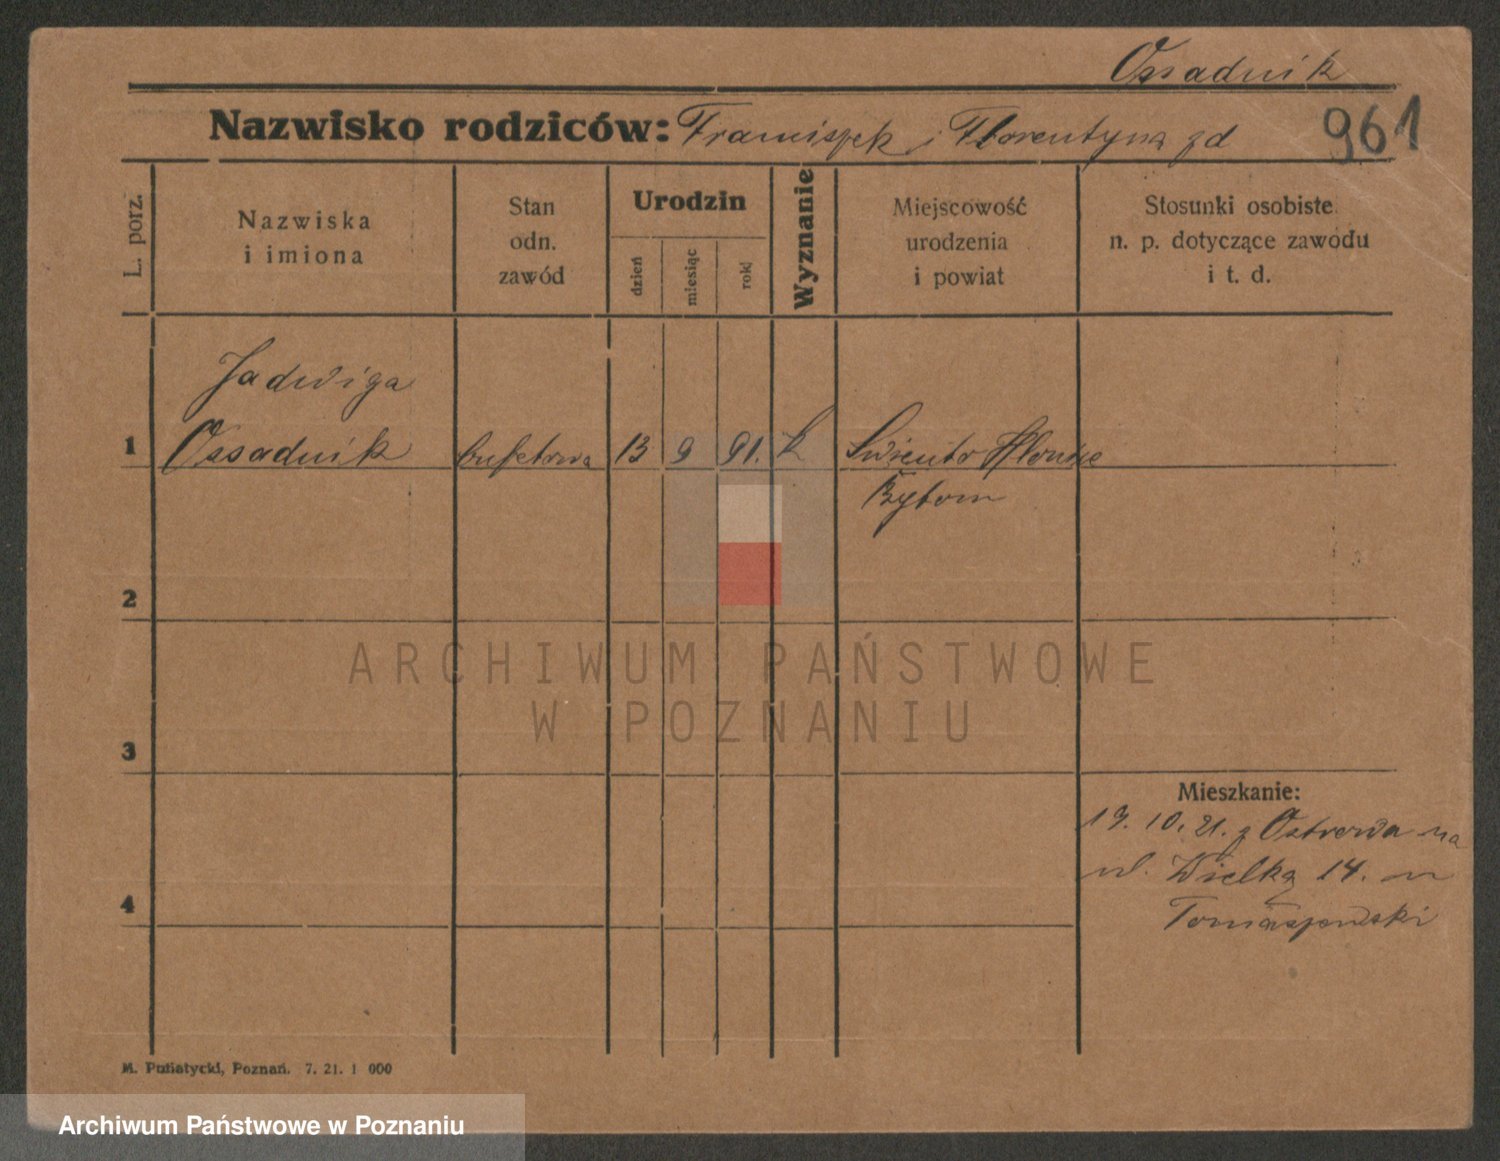 Ossadnik
Nazwisko rodziców: Franciszek i Florentyna zd
961
L. porz.
Nazwiska
i imiona
Stan
odn.
zawód
Urodzin
dzień
miesiąc
rok
Wyznanie
Miejscowość
urodzenia
i powiat
Stosunki osobiste
n. p. dotyczące zawodu
i t. d.
Jadwiga
1 Ossadnik bufetowa 13 9 91. k
Bytom
2
3
4
Mieszkanie:
19. 10. 21. z Ostrowa na
ul. Wielką 14. u
Tomaszewski
M. Putiatycki, Poznań. 7. 21. 1 000
ARCHIWUM PAŃSTWOWE
W POZNANIU
Archiwum Państwowe w Poznaniu